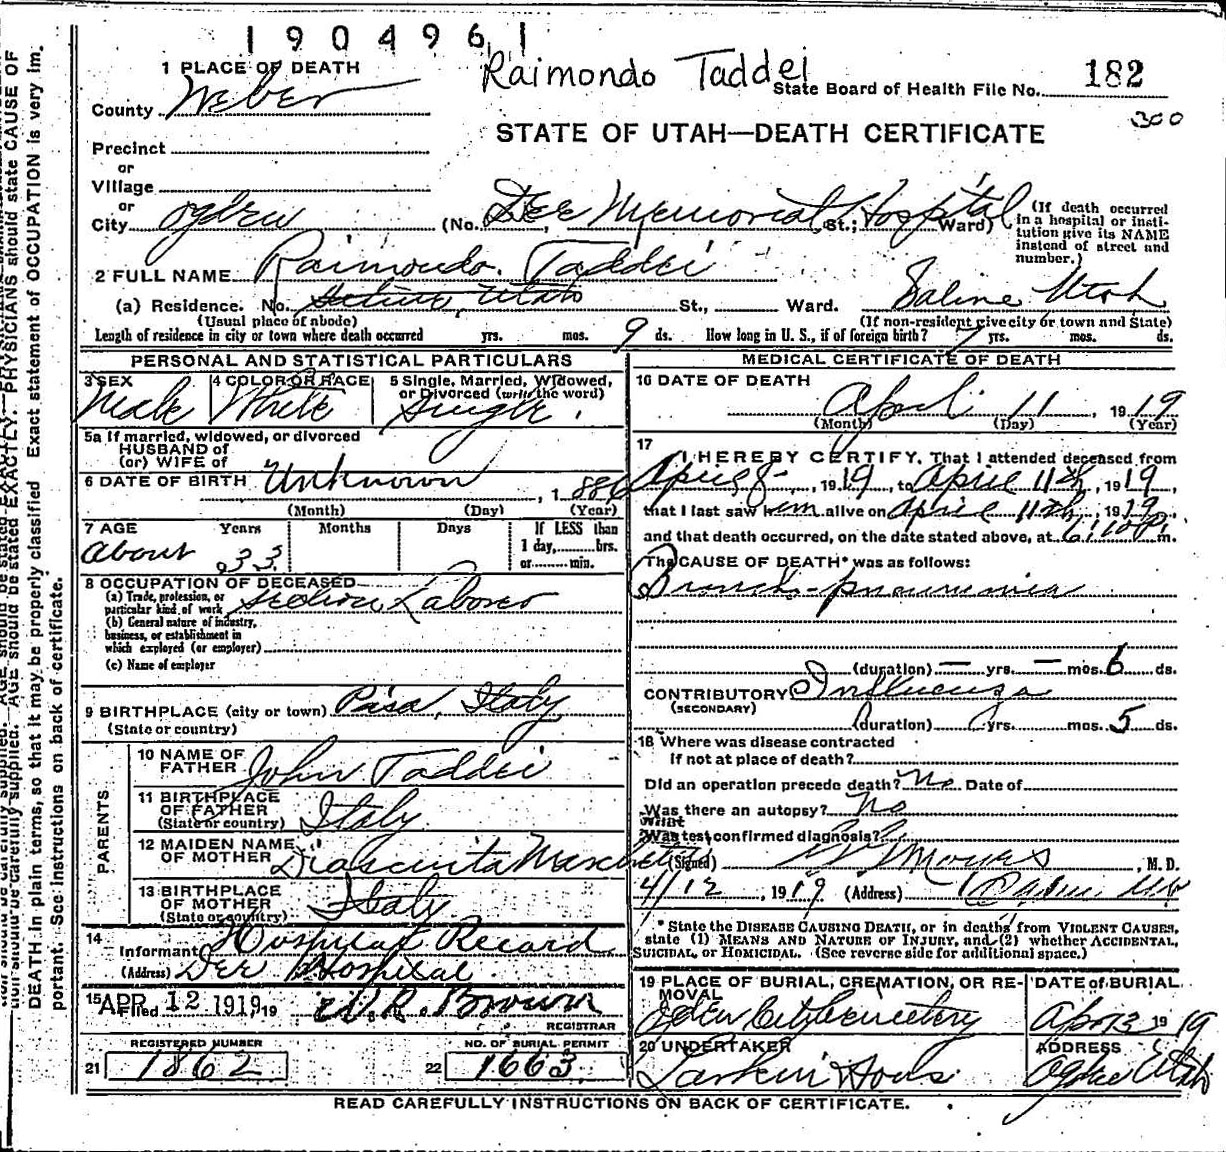 1904961
Raimondo Taddei
1 PLACE OF DEATH
State Board of Health File No. 182
County Weber
300
STATE OF UTAH—DEATH CERTIFICATE
Precinct
or
Village
or
City Ogden (No. Dee Memorial Hospital St.; Ward)
(If death occurred in a hospital or institution give its NAME instead of street and number.)
2 FULL NAME Raimondo Taddei
(a) Residence. No. Utah St., Ward. Saline Utah
(Usual place of abode) (If non-resident give city or town and State)
Length of residence in city or town where death occurred yrs. mos. 9 ds. How long in U. S., if of foreign birth? 7 yrs. mos. ds.
PERSONAL AND STATISTICAL PARTICULARS
3 SEX Male
4 COLOR OR RACE White
5 Single, Married, Widowed, or Divorced (write the word) Single
5a If married, widowed, or divorced
HUSBAND of
(or) WIFE of
6 DATE OF BIRTH Unknown, 1886
(Month) (Day) (Year)
7 AGE Years Months Days If LESS than
About 33 1 day, hrs.
or min.
8 OCCUPATION OF DECEASED
(a) Trade, profession, or
particular kind of work Section Laborer
(b) General nature of industry,
business, or establishment in
which employed (or employer)
(c) Name of employer
9 BIRTHPLACE (city or town) Pisa, Italy
(State or country)
PARENTS
10 NAME OF FATHER John Taddei
11 BIRTHPLACE OF FATHER Italy
(State or country)
12 MAIDEN NAME OF MOTHER
13 BIRTHPLACE OF MOTHER Italy
(State or country)
14 Informant Hospital Record
(Address) Dee Hospital
15 Filed APR 12 1919, 19 W. R. Brown
REGISTRAR
REGISTERED NUMBER
21 1862
NO. OF BURIAL PERMIT
22 1663
MEDICAL CERTIFICATE OF DEATH
16 DATE OF DEATH
April 11, 1919
(Month) (Day) (Year)
17
I HEREBY CERTIFY, That I attended deceased from
April 8, 1919, to April 11th, 1919,
that I last saw him alive on April 11th, 1919
and that death occurred, on the date stated above, at m.
The CAUSE OF DEATH* was as follows:
Broncho-pneumonia
(duration) — yrs. — mos. 6 ds.
CONTRIBUTORY Influenza
(SECONDARY)
(duration) yrs. mos. 5 ds.
18 Where was disease contracted
If not at place of death?
Did an operation precede death? No Date of
Was there an autopsy? No
What test confirmed diagnosis?
(Signed) , M. D.
4/12, 1919 (Address) Ogden
* State the DISEASE CAUSING DEATH, or in deaths from VIOLENT CAUSES,
state (1) MEANS AND NATURE OF INJURY, and (2) whether ACCIDENTAL,
SUICIDAL, or HOMICIDAL. (See reverse side for additional space.)
19 PLACE OF BURIAL, CREMATION, OR REMOVAL
Ogden City Cemetery
DATE OF BURIAL
Apr 13 1919
20 UNDERTAKER
Larkin & Sons
ADDRESS
Ogden Utah
READ CAREFULLY INSTRUCTIONS ON BACK OF CERTIFICATE.
AGE should be stated EXACTLY. PHYSICIANS should state CAUSE OF
DEATH in plain terms, so that it may be properly classified. Exact statement of OCCUPATION is very im-
portant. See instructions on back of certificate.